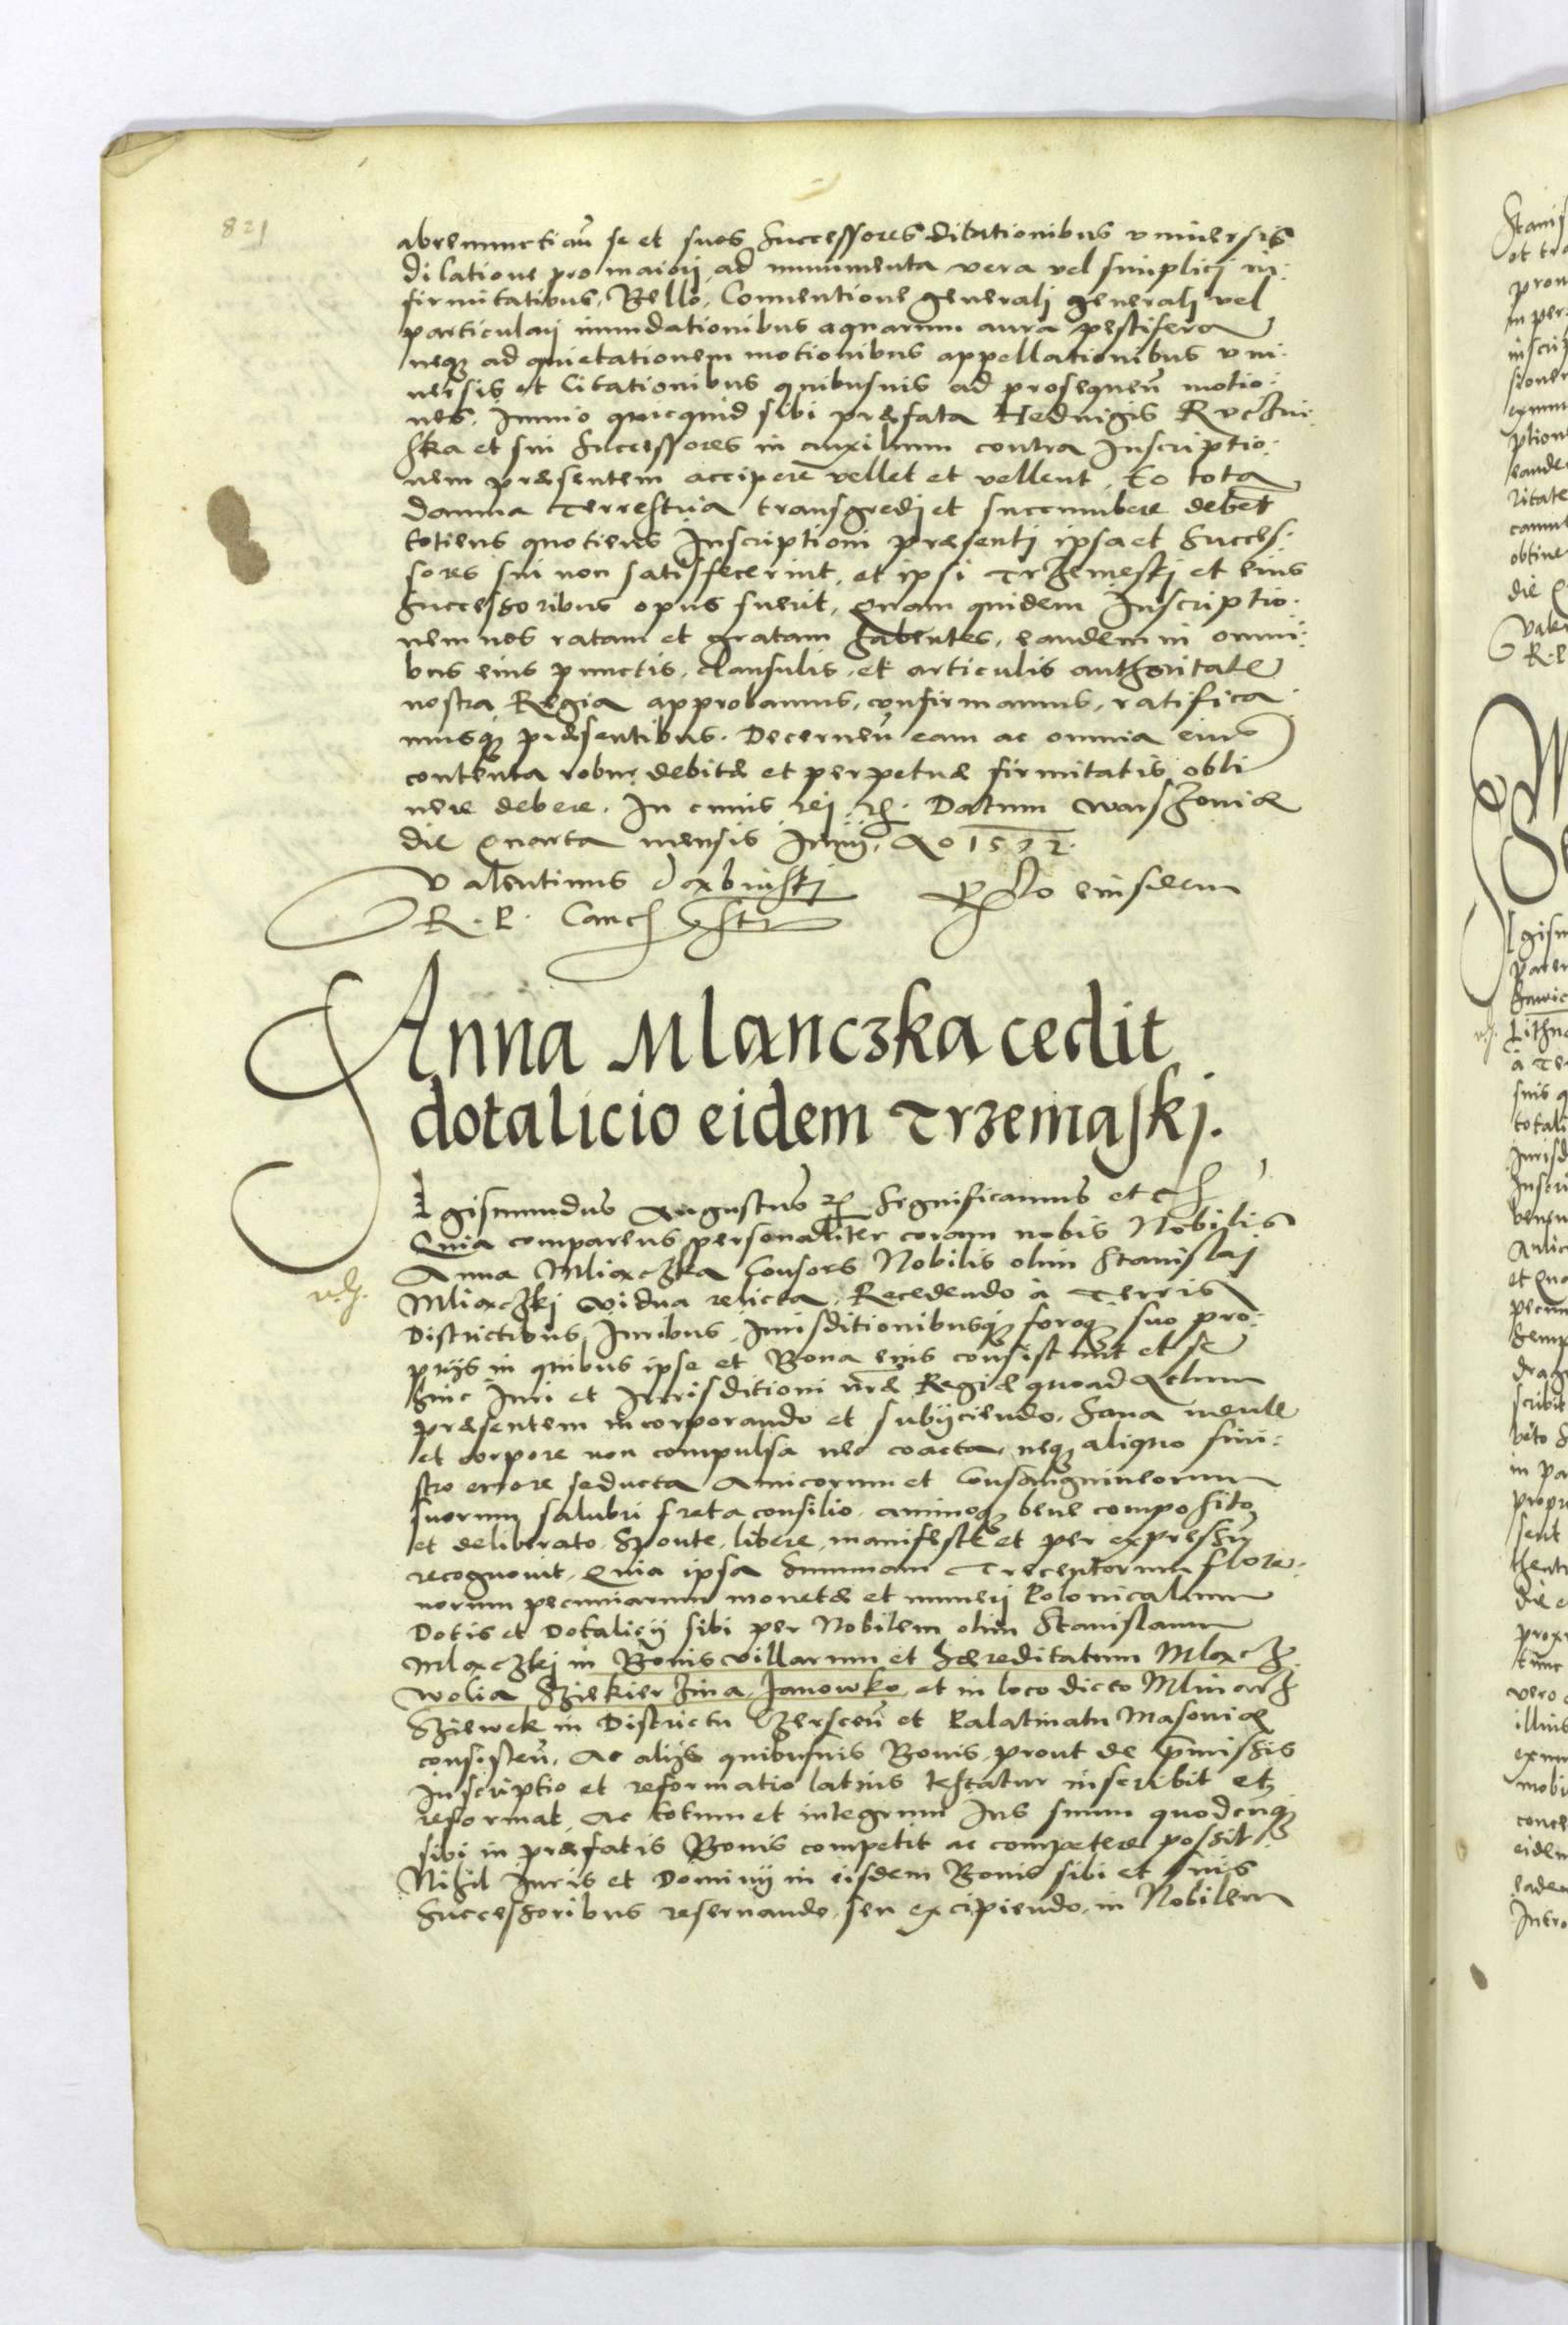 821
abrenunctiaũ se et suos Successores ditationibus vniuersis
dilatione pro maiorj ad munimenta vera vel simplicj in:
firmitatibus, Bello, Conuentione generalj generalj vel
particularj inundationibus aquarum aura pestifera
neqз ad quietationem motionibus appellationibus vni:
uersis et Citationibus quibusuis ad prosequeñ motio:
nes. Immo quicquid sibi præfata Heduigis Ruchni:
ska et sui Successores in auxilium contra Inscriptio:
nem præsentem accipere vellet et vellent, to tota
damna Terrestria transgredj et succumbere debet
totiens quotiens Inscriptioni præsentj ipsa et Succes:
sores sui non satisfecerint, et ipsi Trzemeskj et eius
Successoribus opus fuerit, Quam quidem Inscriptio:
nem nos ratam et gratam habentes, eandem in omni:
bus eius punctis, clausulis, et articulis authoritate
nostra Regia approbamus, confirmamus, ratifica
musqз præsentibus. Decerneñ eam ac omnia eius
contenta robur debitæ et perpetuæ firmitatis obti
nere debere. In cuius rej rħ. Datum Warszouiæ
die Quarta mensis Junij, Ao 1572.
Valentinus Dąbinskj
R. P. Canch sst
Rlo eiusdem
Anna Mlanczka cedit
dotalicio eidem Trzemaskj.
Igismundus Augustus rħ Significamus et ch
Quia comparens personaliter coram nobis Nobilis
Anna Mliączka Consors Nobilis olim Stanislaj
Mliączkj vidua relicta, Recedendo à Terris
Districtibus, Iuribus, Iurisditionibusqз foroqз suo pro:
prijs in quibus ipse et Bona eius consistunt et se
huic Iuri et Iurisditioni nr̃æ Regiæ quoad Actum
præsentem incorporando et subijciendo. Sana mente
et corpore non compulsa nec coacta neqз aliquo sini:
stro errore seducta Amicorum et Consanguineorum
suorum salubri freta consilio animoqз bene composito
et deliberato, Sponte, libere, manifeste et per expressũ
recognouit, Quia ipsa Summam Trecentorum flore:
norum pecuniarum monetæ et numerj Polonicalium
Dotis et Dotalicij sibi per Nobilem olim Stanislaum
Mlączkj in Bonis villarum et Hæreditatum Mlącz
wolia, Sziekierzina, Janowko, et in loco dicto Mlinarz
Sziewek in Districtu Czersceñ et Palatinatu Masouiæ
consisteñ, Ac alijs quibusuis Bonis, prout de præmissis
Inscriptio et reformatio latius testatur inscribit et
reformat, Ac totum et integrum Ius suum quodcunqз
sibi in præfatis Bonis competit ac competere possit
Nihil Iuris et Dominij in eisdem Bonis sibi et suis
Successoribus reseruando, seu excipiendo, in Nobilem